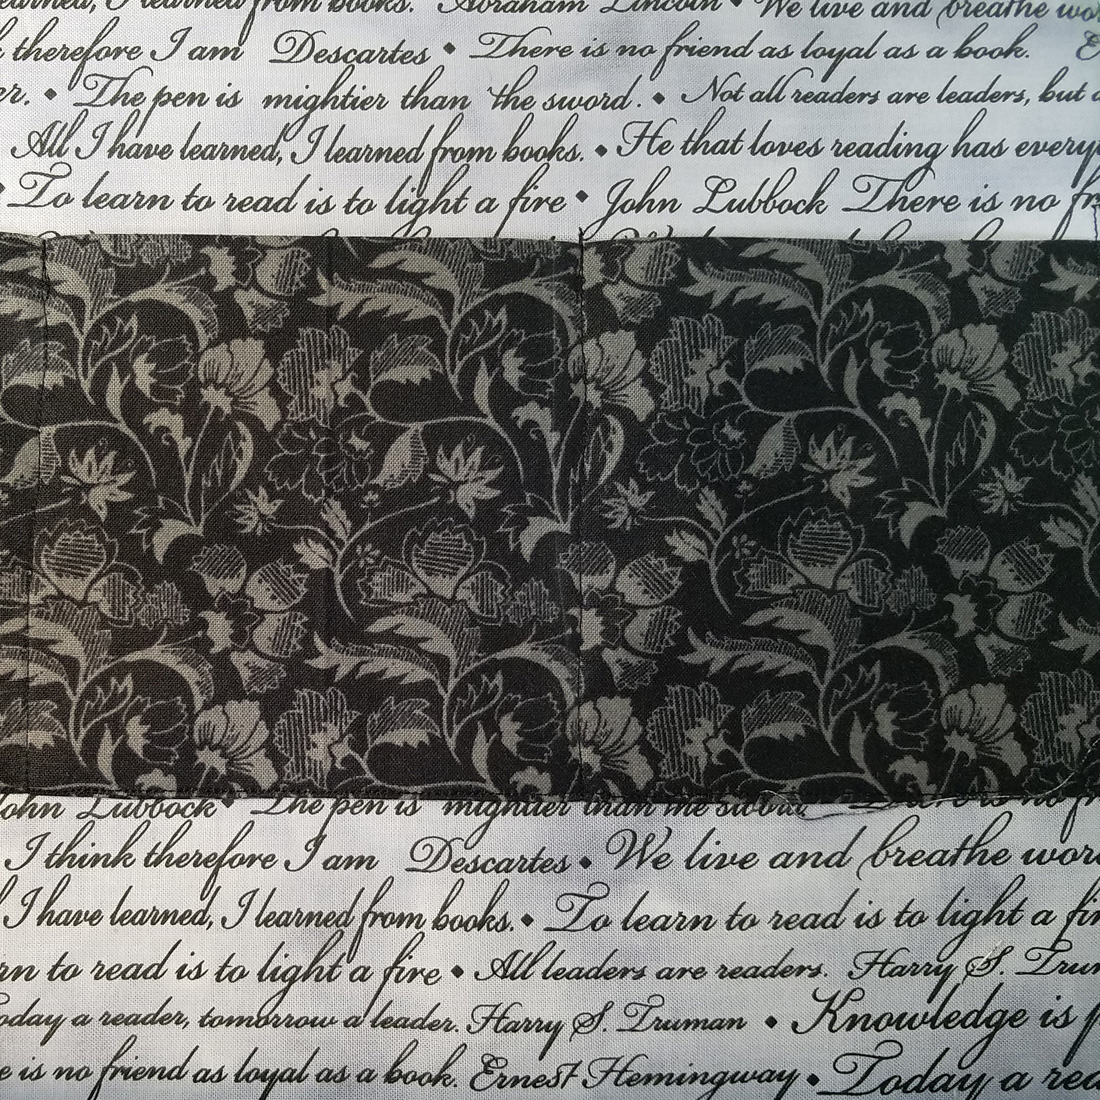 learned, I learned from books. Abraham Lincoln • We live and breathe
therefore I am Descartes • There is no friend as loyal as a book.
• The pen is mightier than the sword. • Not all readers are leaders, but
All I have learned, I learned from books. • He that loves reading has
• To learn to read is to light a fire • John Lubbock There is no
John Lubbock • The pen is mightier than the sword.
I think therefore I am Descartes • We live and breathe
I have learned, I learned from books. • To learn to read is to light a
to read is to light a fire • All leaders are readers. Harry S.
Today a reader, tomorrow a leader. Harry S. Truman • Knowledge is
is no friend as loyal as a book. Ernest Hemingway • Today a